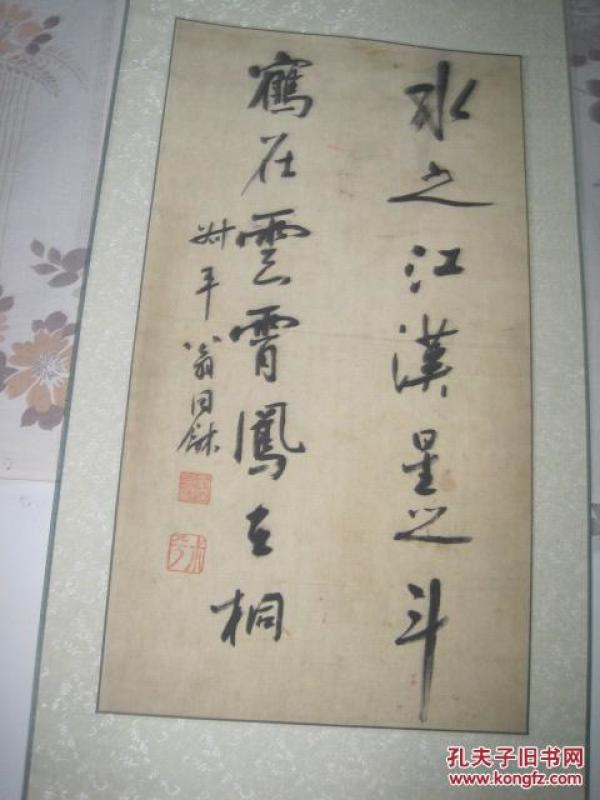 水之江漢星之斗
鶴在雲霄鳳在桐
叔平翁同龢
孔夫子旧书网
www.kongfz.com